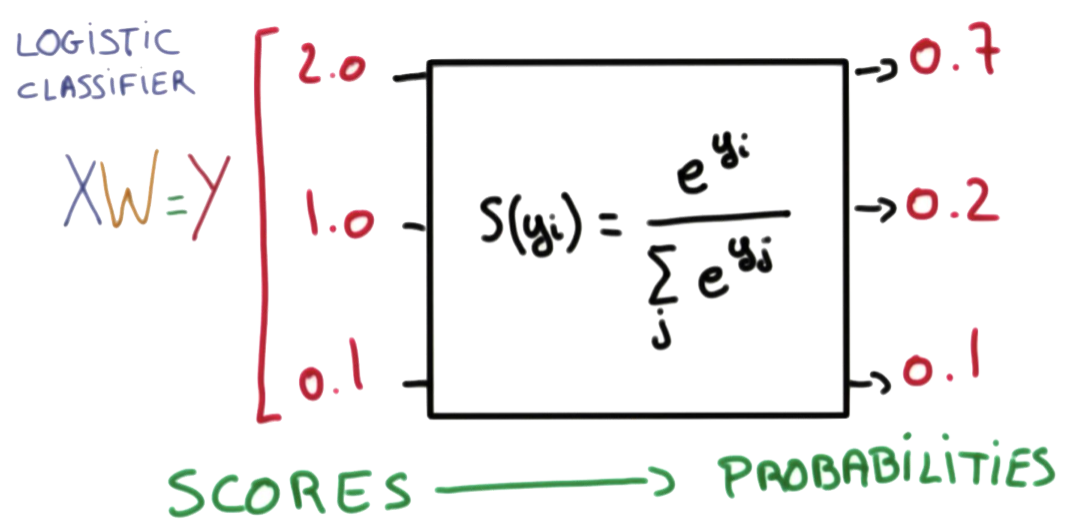 LOGISTIC
CLASSIFIER
XW=Y
2.0
1.0
0.1
S(yᵢ) = e^yᵢ / ∑ⱼ e^yⱼ
0.7
0.2
0.1
SCORES → PROBABILITIES